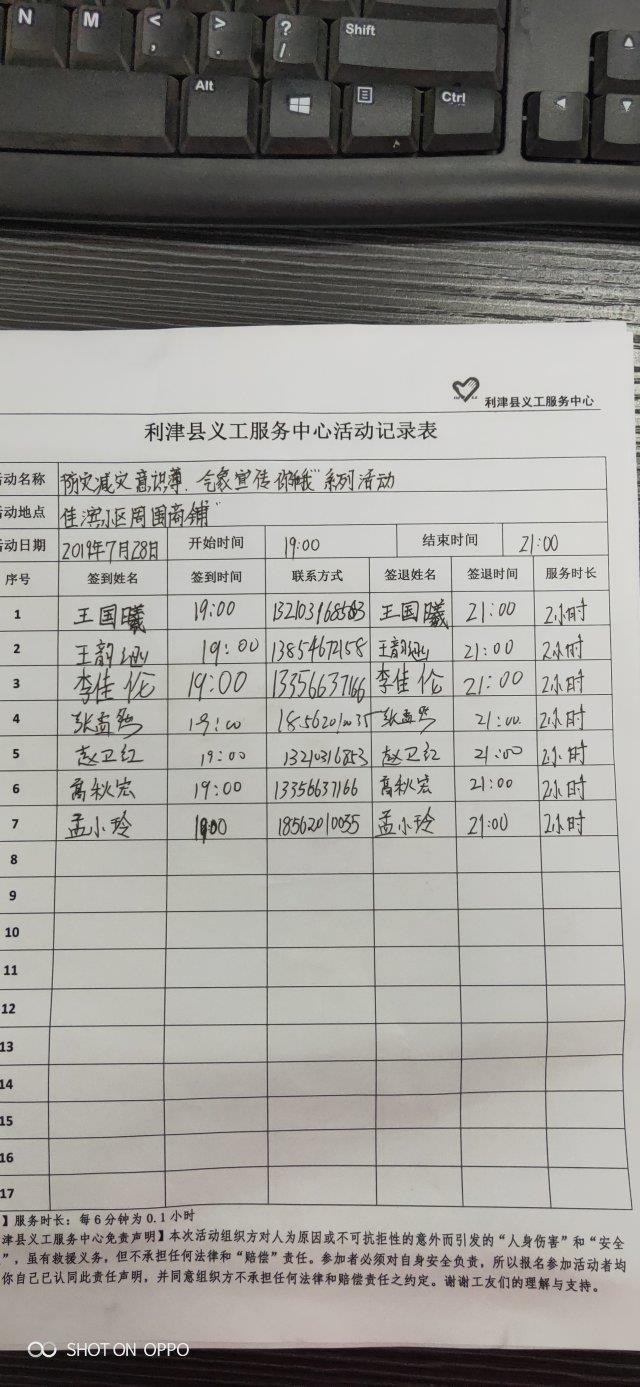 N M < , > . ? / Shift
Alt Ctrl
利津县义工服务中心
利津县义工服务中心活动记录表
动名称 防灾减灾意识薄、气象宣传 系列活动
动地点 佳滨小区周围商铺"
动日期 2019年7月28日 开始时间 19:00 结束时间 21:00
序号 签到姓名 签到时间 联系方式 签退姓名 签退时间 服务时长
1 王国曦 19:00 王国曦 21:00 2小时
2 王韵 19:00 13854672158 王韵 21:00 2小时
3 李佳伦 19:00 13356637166 李佳伦 21:00 2小时
4 张孟 19:00 18562010035 张孟 21:00. 2小时
5 赵卫红 19:00 13210316853 赵卫红 21:00 2小时
6 高秋宏 19:00 13356637166 高秋宏 21:00 2小时
7 孟小玲 19:00 18562010035 孟小玲 21:00 2小时
8
9
10
11
12
13
14
15
16
17
】服务时长：每6分钟为0.1小时
津县义工服务中心免责声明】本次活动组织方对人为原因或不可抗拒性的意外而引发的“人身伤害”和“安全
”，虽有救援义务，但不承担任何法律和“赔偿”责任。参加者必须对自身安全负责，所以报名参加活动者均
你自己已认同此责任声明，并同意组织方不承担任何法律和赔偿责任之约定。谢谢工友们的理解与支持。
SHOT ON OPPO